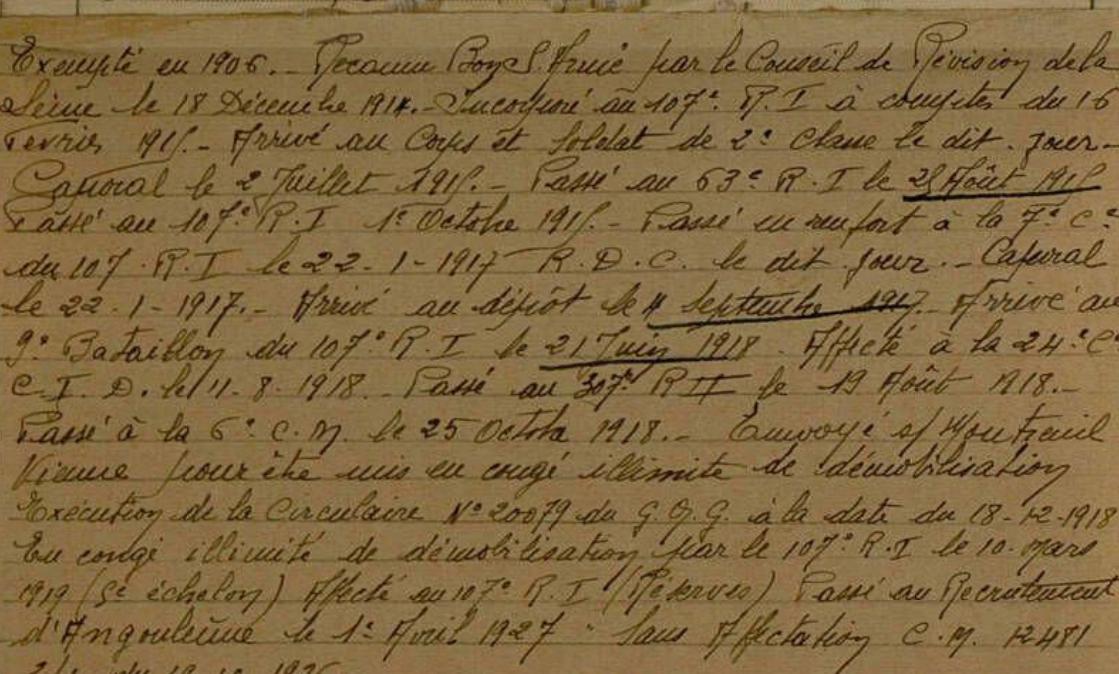 Exempté en 1906. - Reconnu Bon S. Armé par le Conseil de Révision de la
Seine le 18 Décembre 1914. - Incorporé au 107e R.I à compter du 16
Février 1915. - Arrivé au Corps et Soldat de 2e Classe le dit jour -
Caporal le 2 Juillet 1915. - Passé au 63e R.I le 25 Août 1915
Passé au 107e R.I 1e Octobre 1915. - Passé en renfort à la 7e Cie
du 107 R.I le 22-1-1917 R.D.C. le dit jour. - Caporal
le 22-1-1917. - Arrivé au dépôt le 4 Septembre 1917. Arrivé au
9e Bataillon du 107e R.I le 21 Juin 1918. Affecté à la 24e Cie
C.I.D. le 11-8-1918. Passé au 307e RII le 19 Août 1918. -
Passé à la 6e C.M. le 25 Octobre 1918. - Envoyé s/ Montreuil
Vienne pour être mis en congé illimité de démobilisation
Exécution de la Circulaire No 20079 du G.Q.G. à la date du 18-12-1918
En congé illimité de démobilisation par le 107e R.I le 10 mars
1919 (5e échelon) Affecté au 107e R.I (Réserves) Passé au Recrutement
d'Angoulême le 1e Avril 1927 " Sans Affectation C.M. 12481